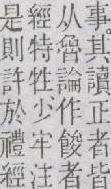 事。其讀正者皆
从魯論作餕者
經特牲少牢注
是則許於禮經